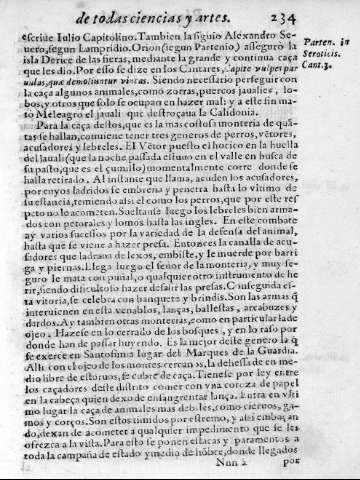 de todas ciencias y artes. 234
escriue Iulio Capitolino. Tambien la siguio Alexandro Se-
uero, segun Lampridio. Orion (segun Partenio) asseguró la
isla Derice de las fieras, mediante la grande y continua caça
que les dio. Por esso se dize en los Cantares, Capite vulpes par
uulas, quæ demoliuntur vineas. Siendo necessario perseguir con
la caça algunos animales, como zorras, puercos jaualies, lo-
bos, y otros que solo se ocupan en hazer mal: y a este fin ma-
tó Meleagro el jauali que destroçaua la Calidonia.
Parten. in
Seroticis.
Cant. 3.
Para la caça destos, que es la mas costosa monteria de quã-
tas se hallan, conuiene tener tres generos de perros, vẽtores,
acusadores y lebreles. El Vẽtor puesto el hocico en la huella
del jauali (que la noche passada estuuo en el valle en busca de
su pasto, que es el çumillo) momentalmente corre donde se
halla retirado. Al instante que llama, acuden los acusadores,
por cuyos ladridos se embreña y penetra hasta lo vltimo de
su estancia, temiendo assi el como los perros, que por este res
peto no le acometen. Sueltanse luego los lebreles bien arma-
dos con petorales y lomos hasta las ingles. En este combate
ay varios sucessos por la variedad de la defensa del animal,
hasta que se viene a hazer presa. Entonces la canalla de acu-
sadores que ladraua de lexos, embiste, y le muerde por barri
ga y piernas. Llega luego el señor de la monteria, y muy se-
guro le mata con puñal, o qualquier otro instrumento de he
rir, siendo dificultoso hazer desasir las presas. Conseguida es-
ta vitoria, se celebra con banquete y brindis. Son las armas q̃
interuienen en esta venablos, lanças, ballestas, arcabuzes y
dardos. Ay tambien otras monterias, como en particular la de
ojeo. Hazese en lo cerrado de los bosques, y en lo raso por
donde han de passar huyendo. Es la mejor deste genero la q̃
se exerce en Santofimia lugar del Marques de la Guardia.
Alli con el ojeo de los montes cercanos, la dehessa de en me-
dio libre de estoruos, se cubre de caça. Tienese por ley entre
los caçadores deste distrito comer con vna coroza de papel
en la cabeça quien dexo de ensangrentar lança. Entra en vlti
mo lugar la caça de animales mas debiles, como cieruos, ga-
mos y corços. Son estos timidos por estremo, y assi embaraçan
do, dexan de acometer a qualquier impedimento que se les
ofrezca a la vista. Para esto se ponen estacas y paramentos a
toda la campaña de estado y medio de hõbre, donde llegados
Nnn 2 por